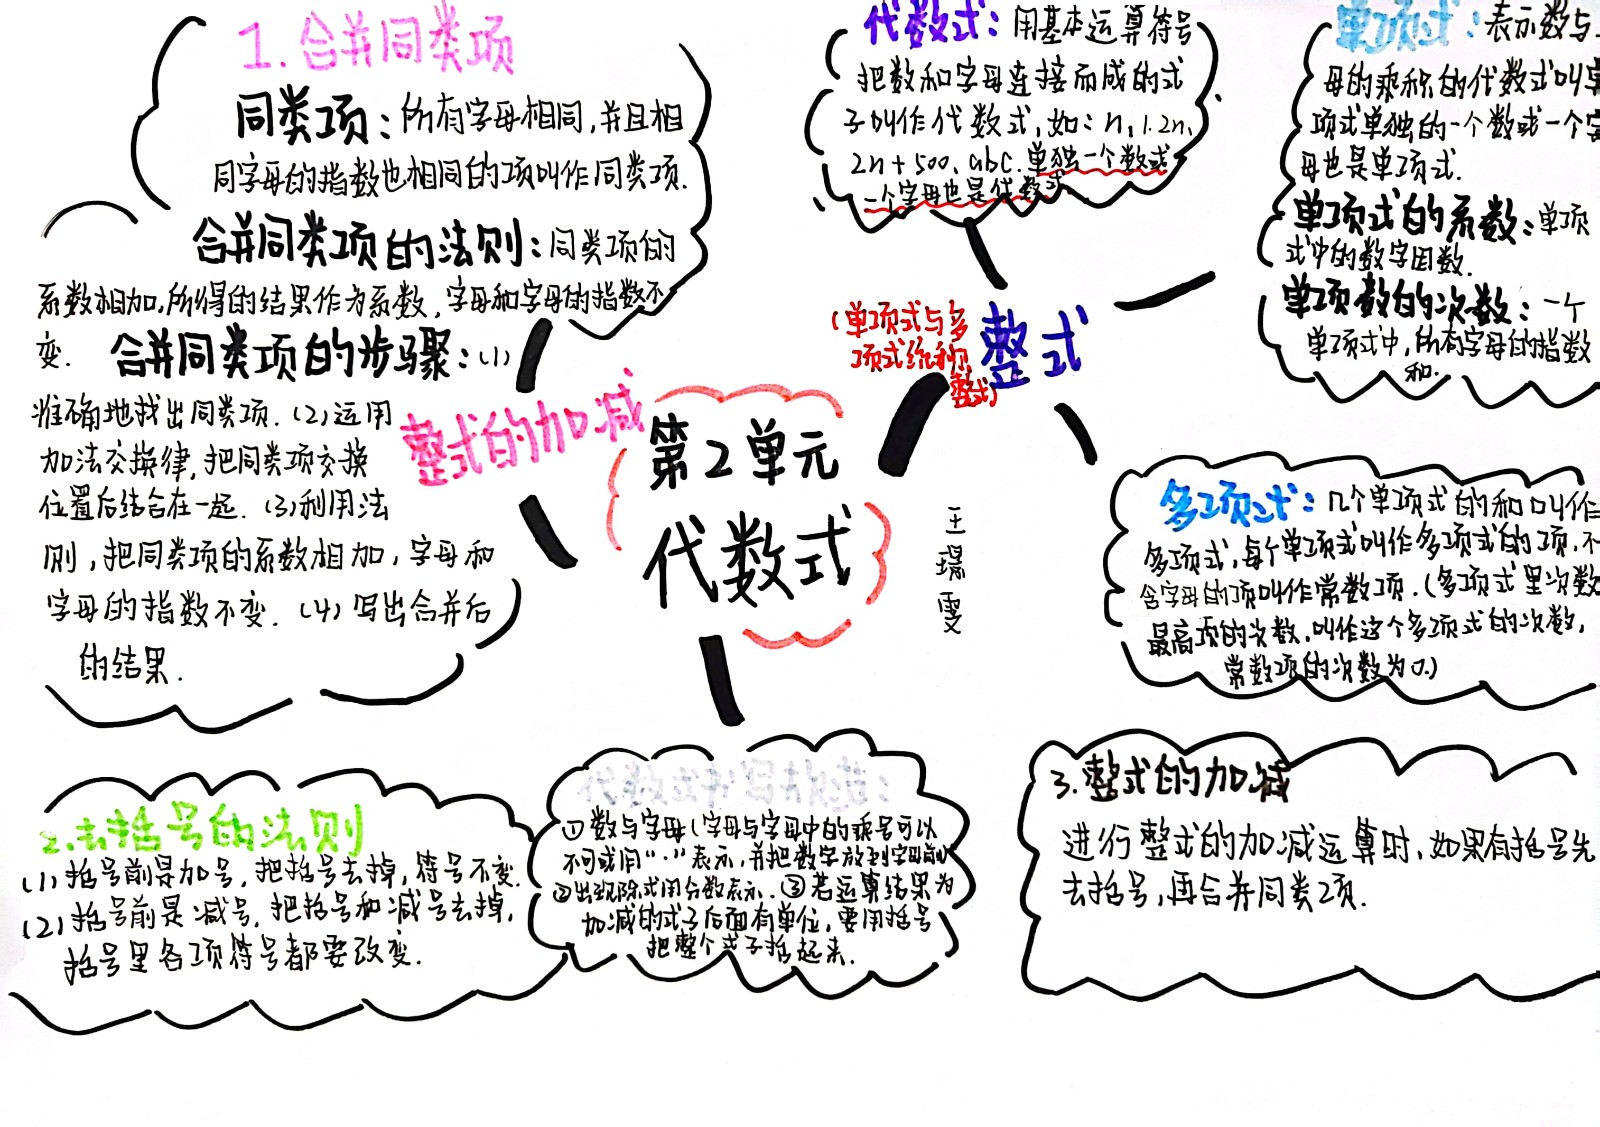 1.合并同类项
同类项:所有字母相同,并且相
同字母的指数也相同的项叫作同类项.
合并同类项的法则:同类项的
系数相加,所得的结果作为系数,字母和字母的指数不
变.合并同类项的步骤:(1)
准确地找出同类项.(2)运用
加法交换律,把同类项交换
位置后结合在一起.(3)利用法
则,把同类项的系数相加,字母和
字母的指数不变.(4)写出合并后
的结果.
整式的加减
第2单元
代数式
代数式:用基本运算符号
把数和字母连接而成的式
子叫作代数式,如:n,1.2n,
2n+500、abc.单独一个数或
一个字母也是代数式
(单项式与多
项式统称
整式)
整式
单项式:表示数与
母的乘积的代数式叫单
项式单独的一个数或一个字
母也是单项式.
单项式的系数:单项
式中的数字因数.
单项数的次数:一个
单项式中,所有字母的指数
和.
多项式:几个单项式的和叫作
多项式,每个单项式叫作多项式的项,不
含字母的项叫作常数项.(多项式里次数
最高项的次数,叫作这个多项式的次数,
常数项的次数为0.)
王
雯
2.去括号的法则
(1)括号前是加号,把括号去掉,符号不变.
(2)括号前是减号,把括号和减号去掉,
括号里各项符号都要改变.
代数式书写规范:
①数与字母(字母与字母中的乘号可以
不写或用"·"表示,并把数字放到字母前
②出现除式用分数表示.③若运算结果为
加减的式子后面有单位,要用括号
把整个式子括起来.
3.整式的加减
进行整式的加减运算时,如果有括号先
去括号,再合并同类项.